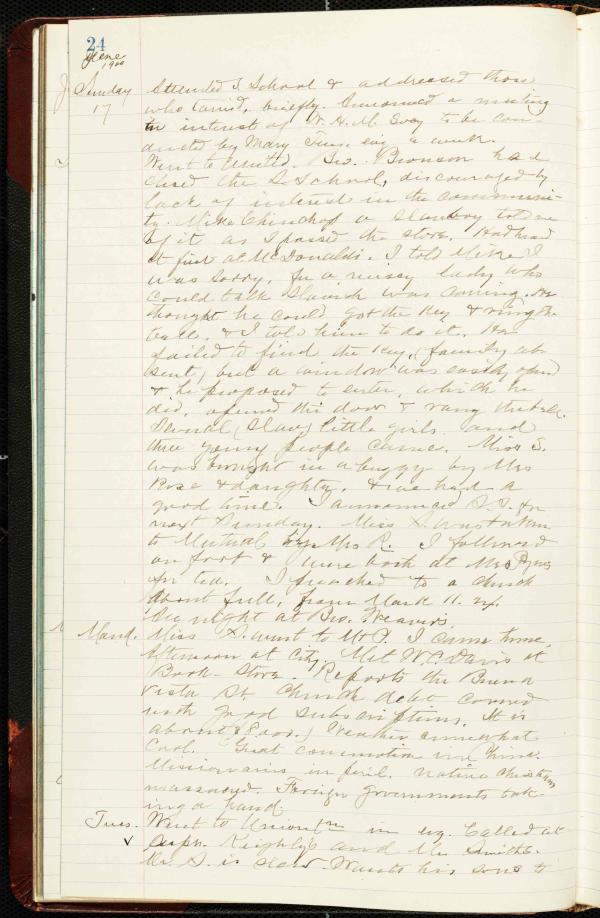 24
June
1900
Sunday
17
Attended S. School & addressed those
who tarried, briefly. Announced a meeting
in interest of W. H. M. Socy to be con-
ducted by Mary Tues. evg. a week.
Went to United. Bro. Bronson had
closed the S. School, discouraged by
lack of interest in the communi-
ty. Mike Chinchof a Slav boy told me
of it as I passed the store. Had had
at McDonalds. I told Mike I
was sorry, for a missy lady who
could talk Slavish was coming. He
thought he could get the key & ring the
bell, & I told him to do it. He
failed to find the key, (family ab-
sent) but a window was easily opend
& he proposed to enter, which he
did, opened the door & rang the bell.
Several (Slav) little girls and
three young people came. Miss S.
was brought in a buggy by Mrs
Rose & daughter, & we had a
good time. I announced S. S. for
next Sunday. Miss S. was taken
to Mutual by Mrs R. I followed
on foot & were both at Mrs
for tea. I preached to a church
about full, from Mark 11. 24.
the night at Bro. Weaver's.
Mond.
Miss S. went to Mt P. I came home.
Afternoon at City. Met W. C. Davis at
Book-Store. Reports the Buena
Vista St. Church debt covered
with good subscriptions. It is
about 8,000.) Weather somewhat
Cool. Great commotion in China.
Missionaries in peril. Native Christians
massacred. Foreign governments tak-
ing a hand.
Tues.
Went to Uniontn in evg. Called at
Supn. Keighly's and Mr Smith's.
Mr. S. is slow. Wants his sons to